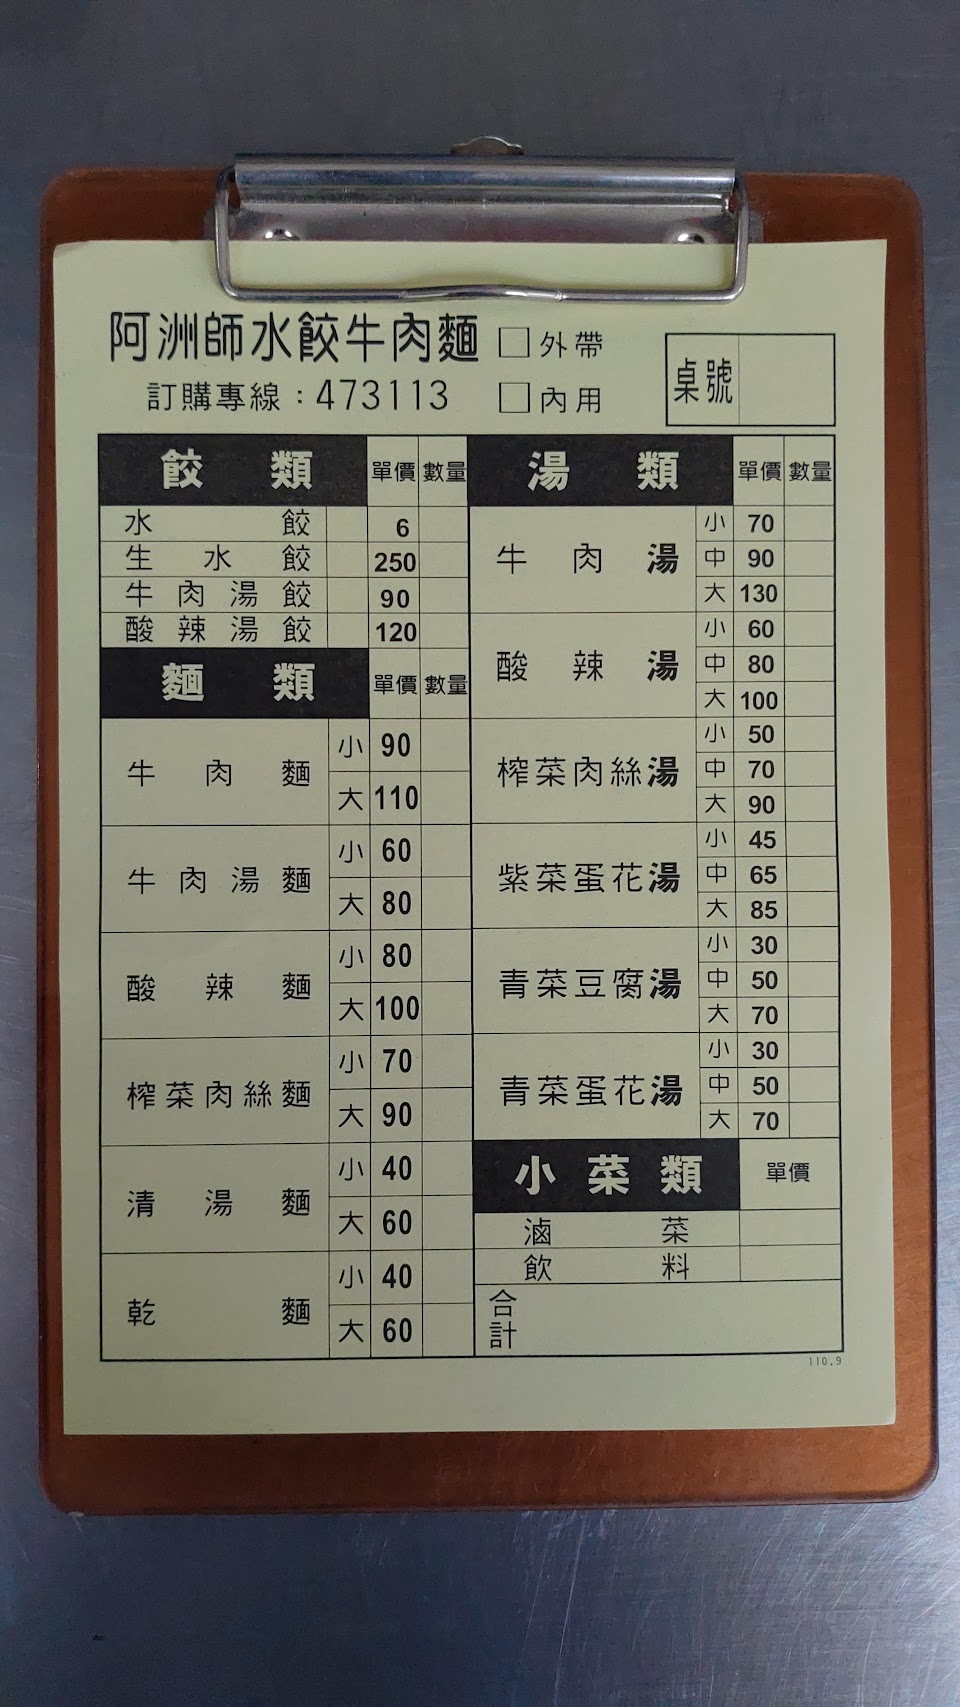 阿洲師水餃牛肉麵
訂購專線：473113
□外帶
□內用
桌號
餃類 單價 數量
水餃 6
生水餃 250
牛肉湯餃 90
酸辣湯餃 120
麵類 單價 數量
牛肉麵 小 90
大 110
牛肉湯麵 小 60
大 80
酸辣麵 小 80
大 100
榨菜肉絲麵 小 70
大 90
清湯麵 小 40
大 60
乾麵 小 40
大 60
湯類 單價 數量
牛肉湯 小 70
中 90
大 130
酸辣湯 小 60
中 80
大 100
榨菜肉絲湯 小 50
中 70
大 90
紫菜蛋花湯 小 45
中 65
大 85
青菜豆腐湯 小 30
中 50
大 70
青菜蛋花湯 小 30
中 50
大 70
小菜類 單價
滷菜
飲料
合計
110.9